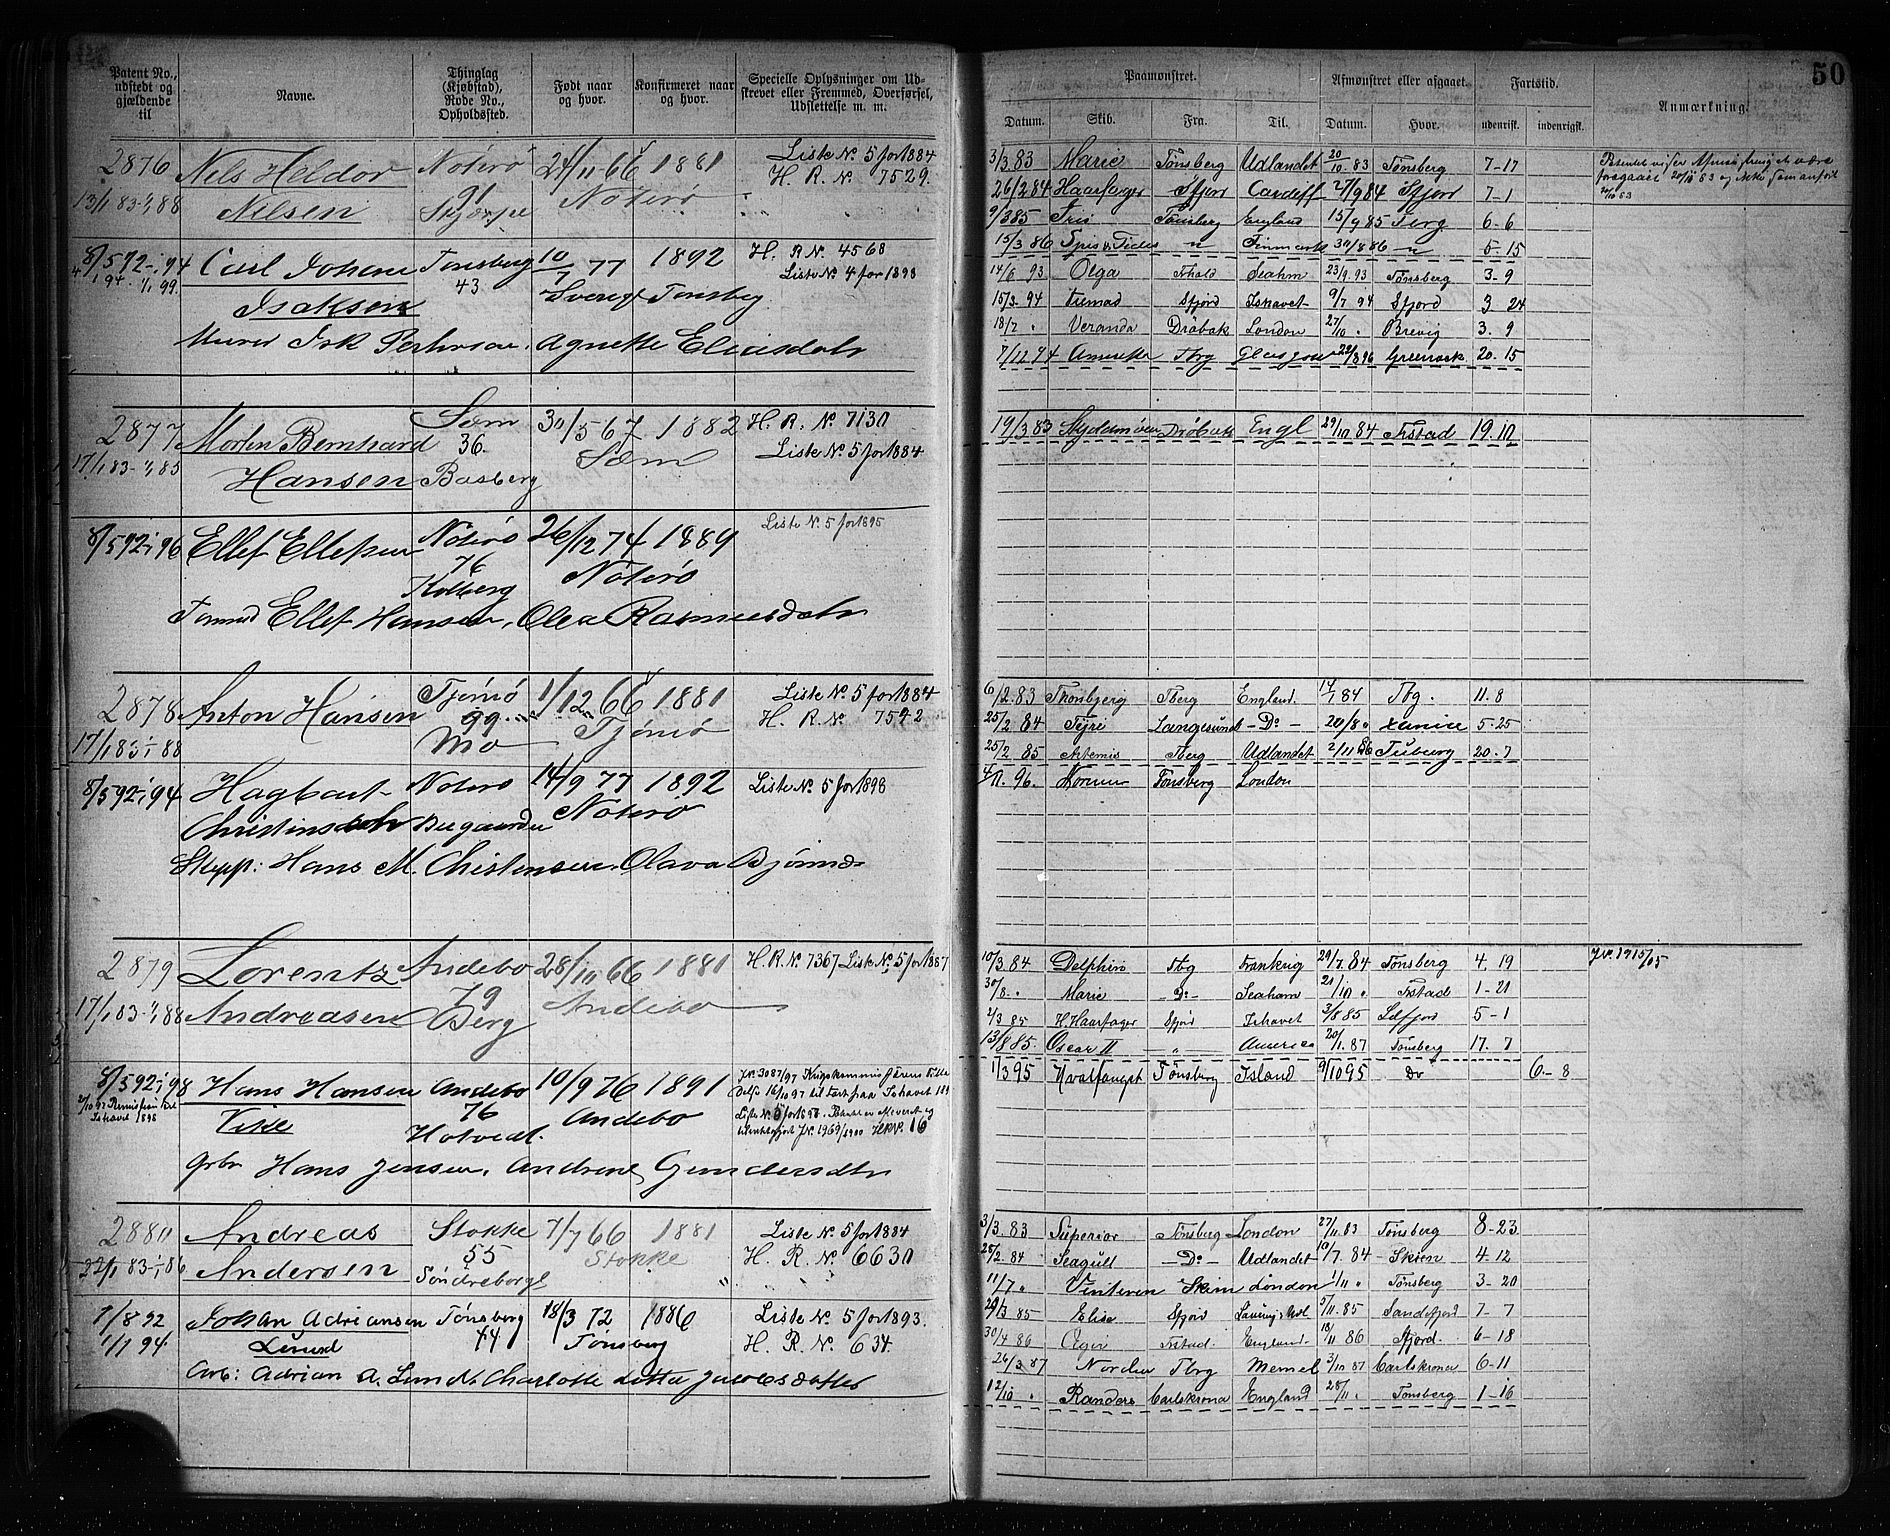 50
Patent No., udstedt og gjældende til
Navne.
Thinglag (Kjøbstad), Rode No., Opholdssted.
Født naar og hvor.
Konfirmeret naar og hvor.
Specielle Oplysninger om Udskrevet eller Fremmed, Overførsel, Udslettelse m. m.
Paamønstret.
Afmønstret eller afgaaet.
Fartstid.
Anmærkning.
Datum. Skib. Fra. Til. Datum. Hvor. udenrisk. indenrigsk.
2876 Nels Heldor Nøterø 24/11 66 1881 Liste No. 5 for 1884
91 Nøterø H. R. No. 7529.
13/1 83-1/1 88 Nilsen
8/5 92-1/1 94 Carl Johan Tønsberg 10/7 77 1892 H. R. No. 4568
1/1 99. Isaksen 43 Sverige Tønsberg Liste No. 4 for 1898
Agnethe Eliasdatr
2877 Morten Bernhard Sæm 30/5 67 1882 H. R. No. 7130
36. Sæm Liste No. 5 for 1884
17/1 83-1/1 85 Hansen Basberg
8/5 92-1/1 96 Ellef Ellefsen Nøterø 26/12 74 1889 Liste No. 5 for 1895
76 Nøterø
Kolberg
Tømmd Ellef Hansen, Olea Rasmusdatr
2878 Anton Hansen Tjømø 1/12 66 1881 Liste No. 5 for 1884
99 Tjømø H. R. No. 7542
17/1 83-1/1 88 Mo
8/5 92-1/1 94 Hagbart Nøterø 14/9 77 1892 Liste No. 5 for 1898
Nøterø
Skipp: Hans M. Christensen, Olava Bjørnsd
2879 Lorentz Andebo 28/10 66 1881 H. R. No. 7367 Liste No. 5 for 1887
79 Andebo
17/1 83-1/1 88 Andreasen Berg
8/5 92-1/1 98 Hans Hansen Andebo 10/9 76 1891
76 Andebo
Hotvedt.
Grbr Hans Jensen, Andrine Gundersdtr
2880 Andreas Stokke 7/7 66 1881 Liste No. 5 for 1884
55 Stokke H. R. No. 6630
22/1 83-1/1 86 Andersen
1/8 92 Johan Adriansen Tønsberg 18/3 72 1886 Liste No. 5 for 1893.
1/1 94. Lund 44 Tønsberg H. R. No. 634.
Arb: Adrian A. Lund
3/3 83 Marie Tønsberg Udlandet 20/10 83 Tønsberg 7-17
26/2 84 Haarfager Sfjor Cardiff 27/9 84 Sfjor 7-1
9/3 85 Tønsberg England 15/9 85 6-6
15/3 86 Finmark 30/8 86 5-15
14/6 93 Olga Seaham 23/9 93 Tønsberg 3-9
15/3-94 Sfjord Ishavet 9/7 94 Sfjord 3 24
18/7 " Veranda Drøbak London 27/10 " Brevig 3. 9
7/11 94 Amerika Tbrg Glasgow 22/8 96 Greenock 20. 15
19/3 83 Drøbak Engl 29/10 84 Frstad 19.10
6/2 83 Tberg England. 84 Tbg. 11.8
25/2 84 Tyri Langesund -Do- 20/8 " 5-25
25/2 85 Artemis Tberg Udlandet 2/11 86 20-7
96. Tønsberg London
10/3 84 Delphin Tbg Frankrig 29/7 84 Tønsberg 4. 19
30/8- " Marie -Do- Seaham 21/10 " Frstad 1-21
2/3 85 H. Haarfager Sfjord Ishavet 3/8 85 5-1
13/8 85. Oscar II -"- America 20/1. 87 Tønsberg 17. 7
1/3 95 Hvalfangst Tønsberg Island 9/10 95 Do 6-8
J.No. 1915/05
3/3 83 Superior Tønsberg London 27/11 83 Tønsberg 8-23
25/2 84 Seagull -Do- Udlandet 10/7. 84 Skien 4.12
11/7 " London 1/11 " Tønsberg 3-20
29/3 85 Elise Sfjord 5/11. 85 Sandefjord 7-7
30/4 86 Frstad England 18/11 86 Sfjord. 6-18
26/3 87 Norden Tbrg Memel 3/10 87 Carlskrona 6-11
12/10 " Randers Carlskrona England 28/11 " Tønsberg 1-16